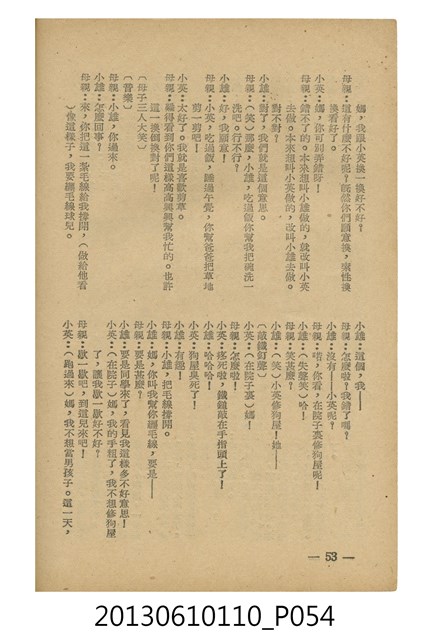 媽，我跟小英換一換好不好？
母親：這有什麼不好呢？既然你們願意換，索性換
換看好了。
小英：媽，你可別弄錯呀！
母親：錯不了的。本來想叫小雄做的，就改叫小英
去做。本來想叫小英做的，改叫小雄去做。
對不對？
小雄：對了，我們就是這個意思。
母親：（笑）那麼，小雄，吃過飯你幫我把碗洗一
洗吧。行不行？
小雄：好，我願意！
母親：小英，吃過飯，睡過午覺，你幫爸爸把草地
剪一剪吧！
小英：太好了。我就是喜歡剪草。
母親：難得看到你們這樣高高興興幫我忙的。也許
這一換倒換對了呢！
（母子三人大笑）
（音樂）
母親：小雄，你過來。
小雄：怎麼回事？
母親：來，你把這一紮毛線給我撐開，（做給他看
）像這樣子，我要纏毛線球兒。
小雄：這個，我——
母親：怎麼啦？我錯了嗎？
小雄：沒有——小英呢？
母親：喏，你看，在院子裏修狗屋呢！
小雄：（失聲笑）哈！
母親：笑甚麼？
小雄：（笑）小英修狗屋！她——
（敲鐵釘聲）
小英：（在院子裏）媽！
母親：怎麼啦！
小英：疼死啦，鐵鎚敲在手指頭上了！
小雄：哈哈哈！
小英：狗屋臭死了！
小雄：有趣！
母親：小雄，把毛線撐開。
小雄：媽，你叫我幫你纏毛線，要是——
母親：要是甚麼？
小雄：要是同學來了，看見我這樣多不好意思！
小英：（在院子）媽，我的手粗了，我不想修狗屋
了，讓我歇一歇好不好？
母親：歇一歇吧，到這兒來吧！
小英：（跑過來）媽，我不想當男孩子。這一天，
— 53 —
20130610110_P054